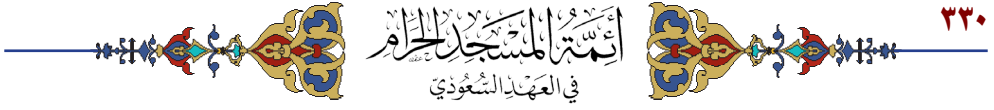 ٣٣٠
أَئِمَّةُ المَسْجِدِ الحَرَامِ
فِي العَهْدِ السُّعُودِيّ